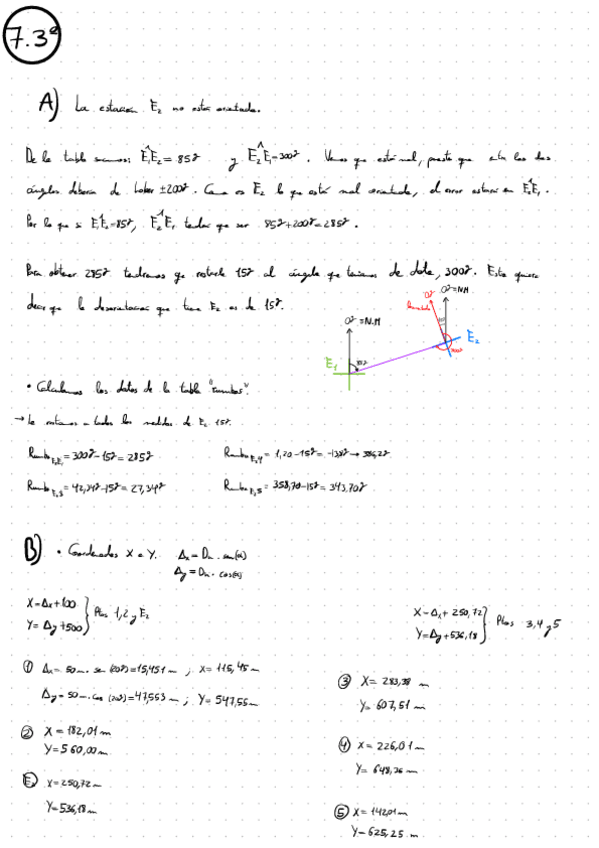 7.3º
A) La estación E₂ no está orientada.
De la tabla sacamos: E₁E₂ = 85ᵍ y E₂E₁ = 300ᵍ. Vemos que está mal, puesto que entre los dos
ángulos debería de haber ±200ᵍ. Como es E₂ lo que está mal orientada, el error estará en E₂E₁.
Por lo que si E₁E₂ = 85ᵍ, E₂E₁ tendrá que ser 85ᵍ+200ᵍ = 285ᵍ.
Para obtener 285ᵍ tendremos que restarle 15ᵍ al ángulo que teníamos de dato, 300ᵍ. Esto quiere
decir que la desorientación que tiene E₂ es de 15ᵍ.
0ᵍ
0ᵍ=N.M.
0ᵍ=N.M
E₁
E₂
• Calculamos los datos de la tabla "rumbos".
→ Le restamos a todas las medidas de E₂ 15ᵍ.
Rumbo E₂E₁ = 300ᵍ-15ᵍ = 285ᵍ
Rumbo E₂4 = 1,20-15ᵍ = -13,8ᵍ → 386,2ᵍ
Rumbo E₂3 = 42,34ᵍ-15ᵍ = 27,34ᵍ
Rumbo E₂5 = 358,70-15ᵍ = 343,70ᵍ
B) • Coordenadas X e Y.
Δx = Dn · sen(α)
Δy = Dn · cos(α)
X = Δx+100
Y = Δy+500
} Ptos 1, 2 y E₂
X = Δx + 250,72
Y = Δy + 536,18
} Ptos 3, 4 y 5
① Δx = 50m · sen (20ᵍ) = 15,451 m ; X = 115,45 m
Δy = 50m · cos (20ᵍ) = 47,553 m ; Y = 547,55m
② X = 182,01 m
Y = 560,00 m
E₂ X = 250,72 m
Y = 536,18 m
③ X = 283,38 m
Y = 607,51 m
④ X = 226,01 m
Y = 648,26 m
⑤ X = 142,01 m
Y = 625,25 m